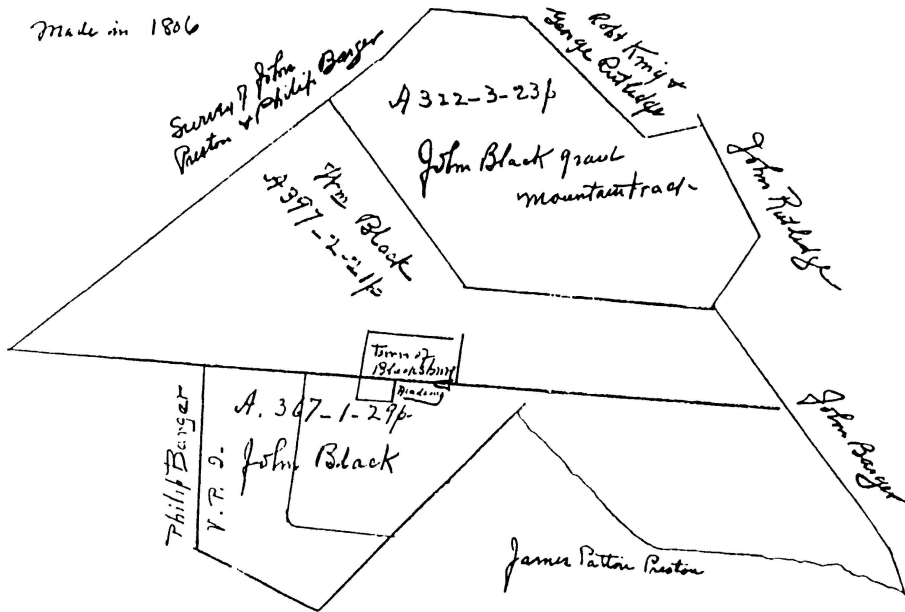 Made in 1806
Survey of John
Preston & Philip Barger
Robt King &
George Rutledge
A 322-3-23p
John Black
mountain
John Rutledge
Wm Black
A 397-2-21p
Town of
Blacksburg
Academy
A. 367-1-29p
John Black
Philip Barger
V. P. I.
John Barger
James Patton Preston